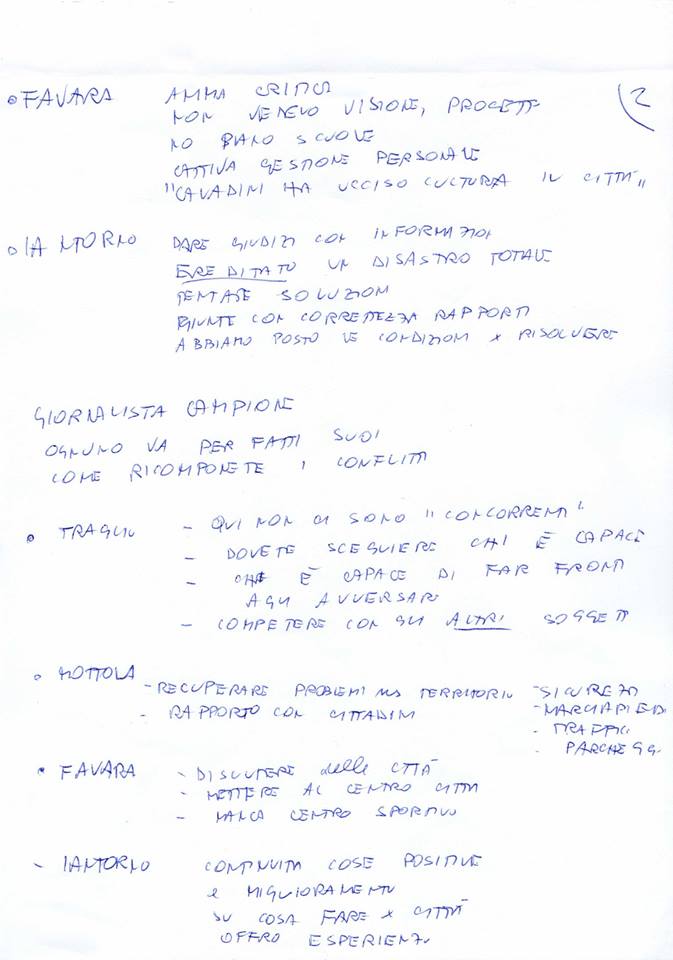 2
• FAVARA AMMA CRITICI
NON VEDEVO VISIONE, PROGETTI
NO PIANO SCUOLE
CATTIVA GESTIONE PERSONALE
"CAVADINI HA UCCISO CULTURA IN CITTÀ"
• IANTORNO DARE GIUDIZI CON INFORMAZIONI
EREDITATO UN DISASTRO TOTALE
TENTATE SOLUZIONI
GIUNTE CON CORRETTEZZA RAPPORTI
ABBIAMO POSTO LE CONDIZIONI X RISOLVERE
GIORNALISTA CAMPIONE
OGNUNO VA PER FATTI SUOI
COME RICOMPONETE I CONFLITTI
• TRAGLIO - QUI NON CI SONO "CONCORRENTI"
- DOVETE SCEGLIERE CHI È CAPACE
- CHI È CAPACE DI FAR FRONTE
AGLI AVVERSARI
- COMPETERE CON GLI ALTRI SOGGETTI
• MOTTOLA
- RECUPERARE PROBLEMI TERRITORIO - SICUREZZA
- RAPPORTO CON CITTADINI - MARCIAPIEDI
- TRAFFICO
- PARCHEGGI
• FAVARA - DISCUTERE delle CITTÀ
- METTERE AL CENTRO CITTÀ
- MANCA CENTRO SPORTIVO
- IANTORNO CONTINUITÀ COSE POSITIVE
e MIGLIORAMENTO
SU COSA FARE X CITTÀ
OFFRO ESPERIENZA